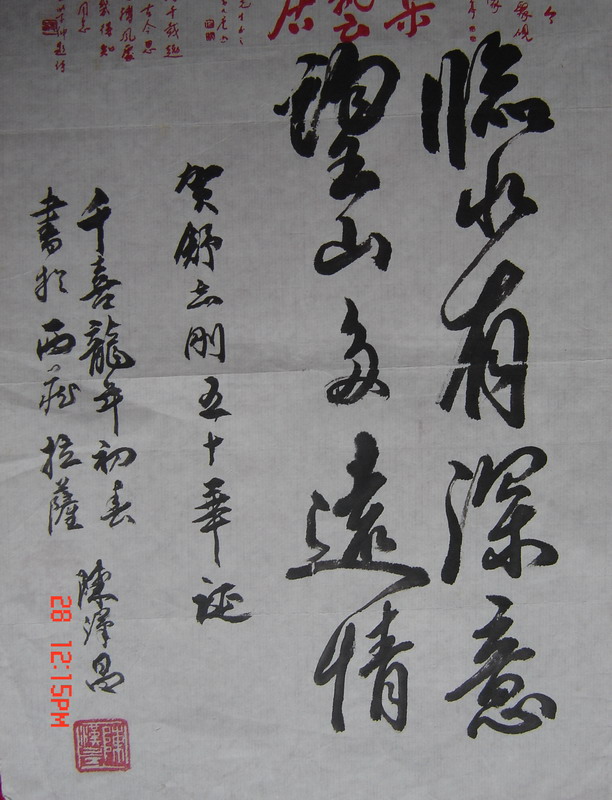 臨水有深意
望山多遠情
贺舒志刚五十華诞
千喜龍年初春
書於西藏拉薩
陳漢昌
28 12:15PM